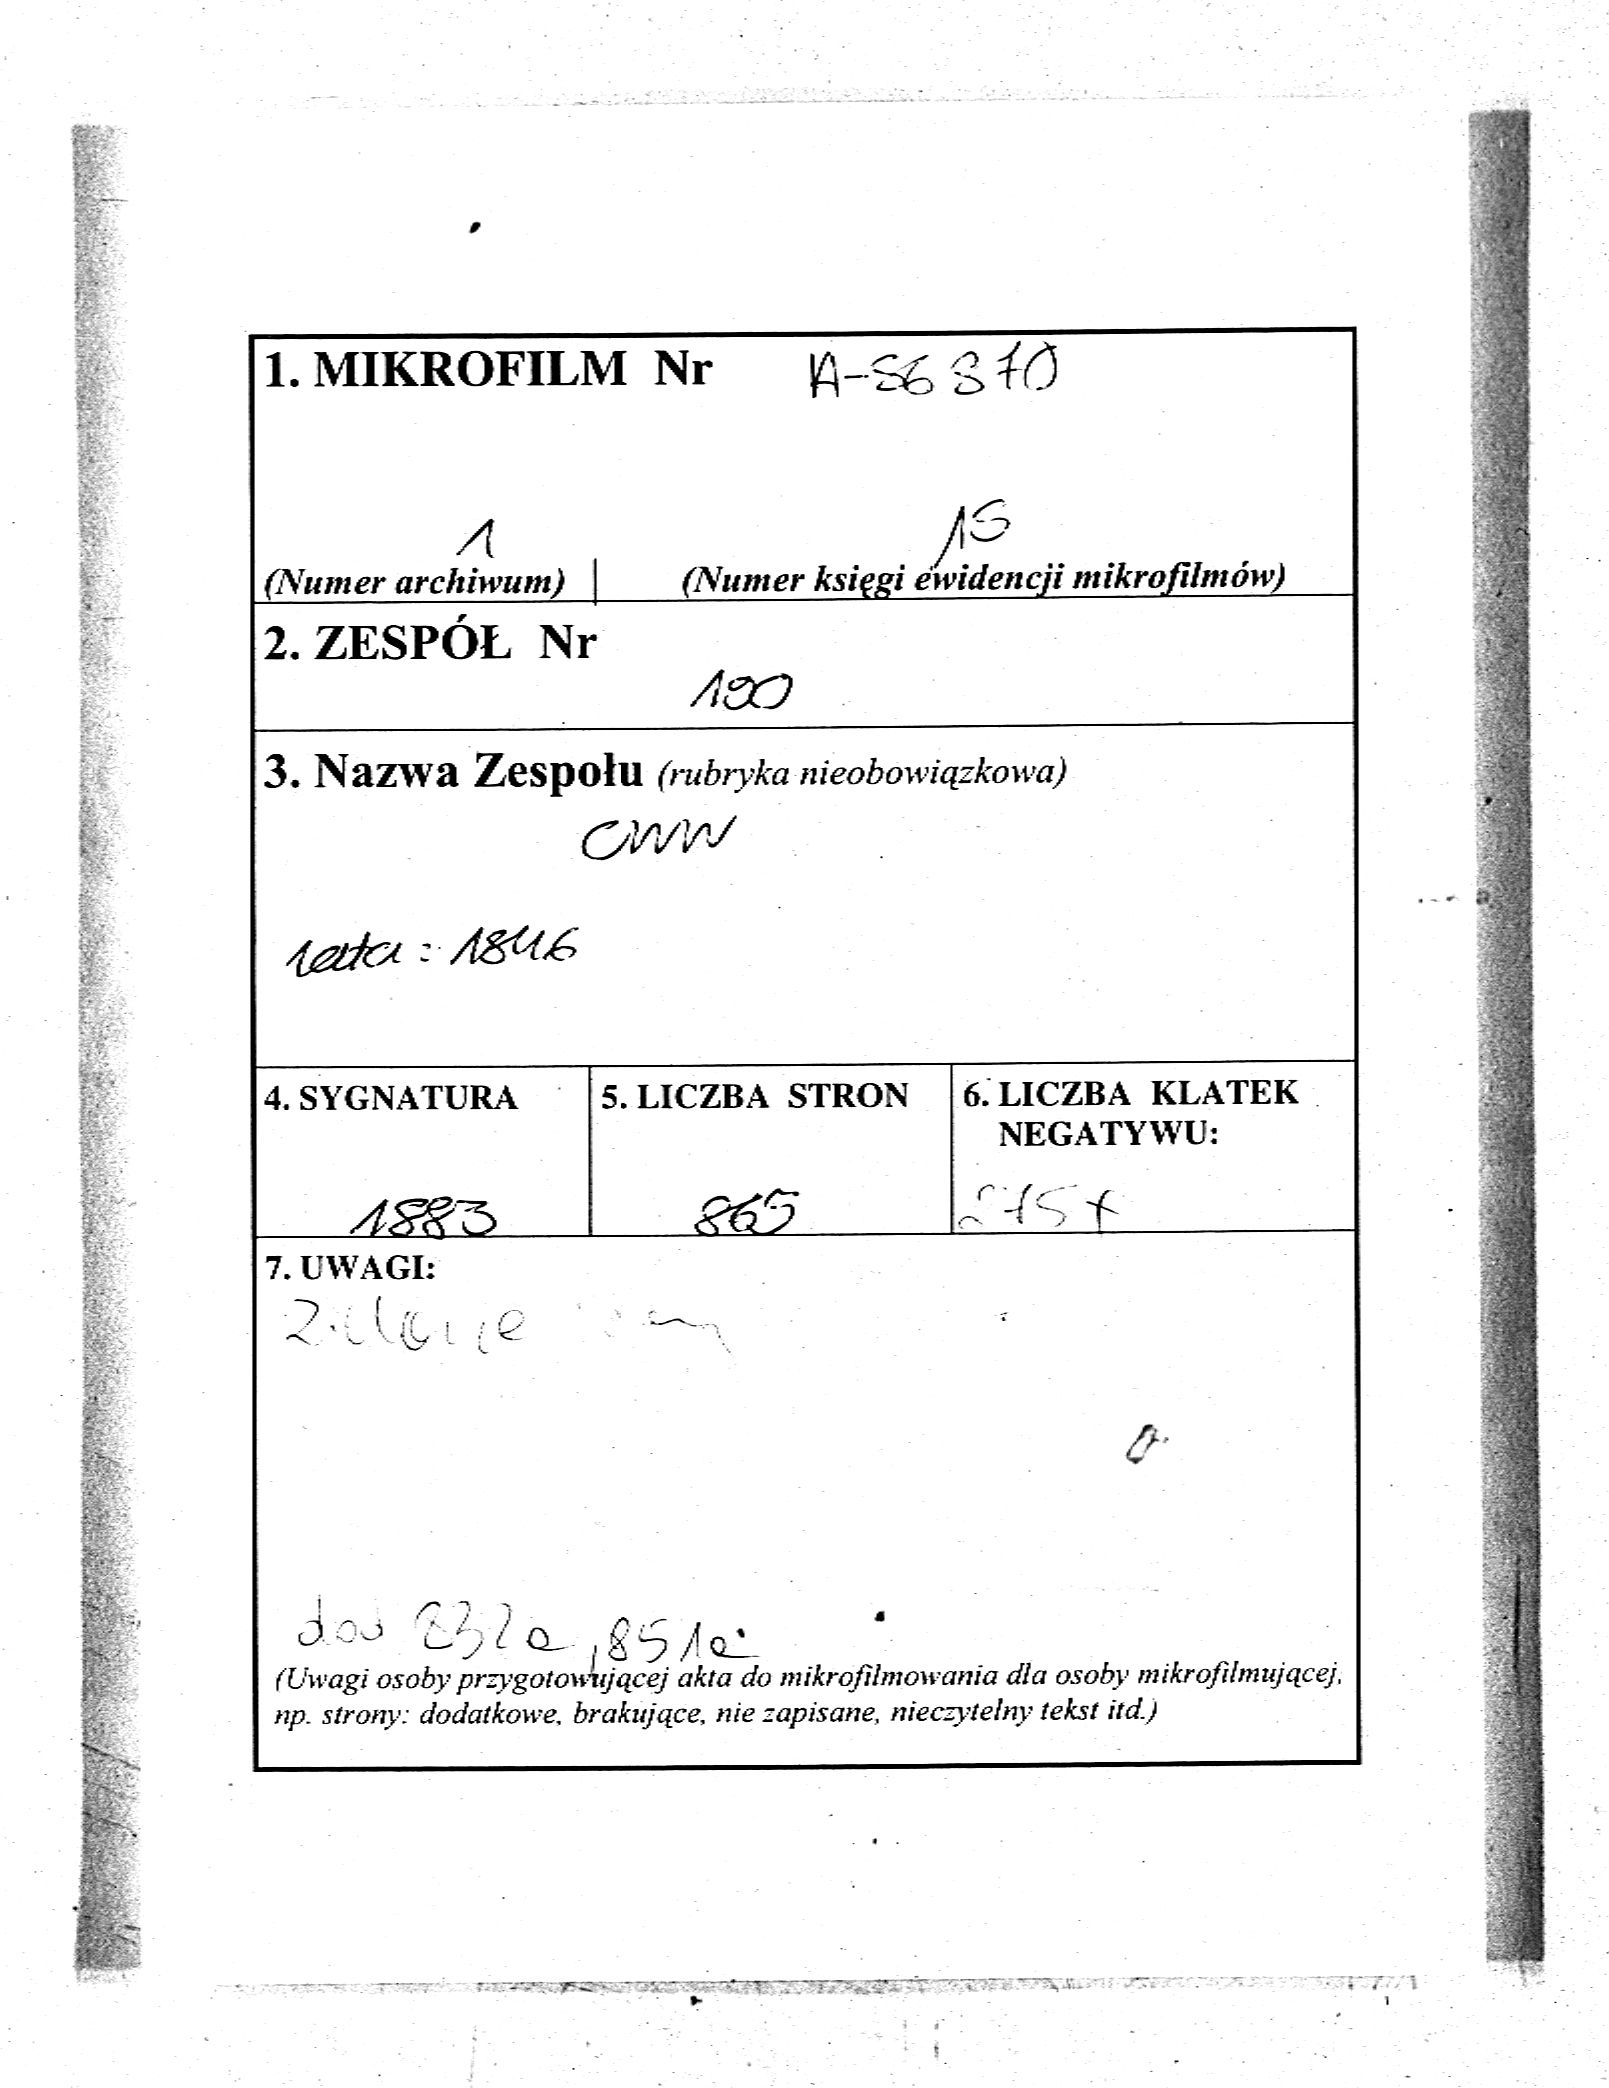 1. MIKROFILM Nr A-56370
1 15
(Numer archiwum) (Numer księgi ewidencji mikrofilmów)
2. ZESPÓŁ Nr
190
3. Nazwa Zespołu (rubryka nieobowiązkowa)
CWW
lata: 1846
4. SYGNATURA 5. LICZBA STRON 6. LICZBA KLATEK
NEGATYWU:
1883 865
7. UWAGI:
851a
(Uwagi osoby przygotowującej akta do mikrofilmowania dla osoby mikrofilmującej,
np. strony: dodatkowe, brakujące, nie zapisane, nieczytelny tekst itd.)